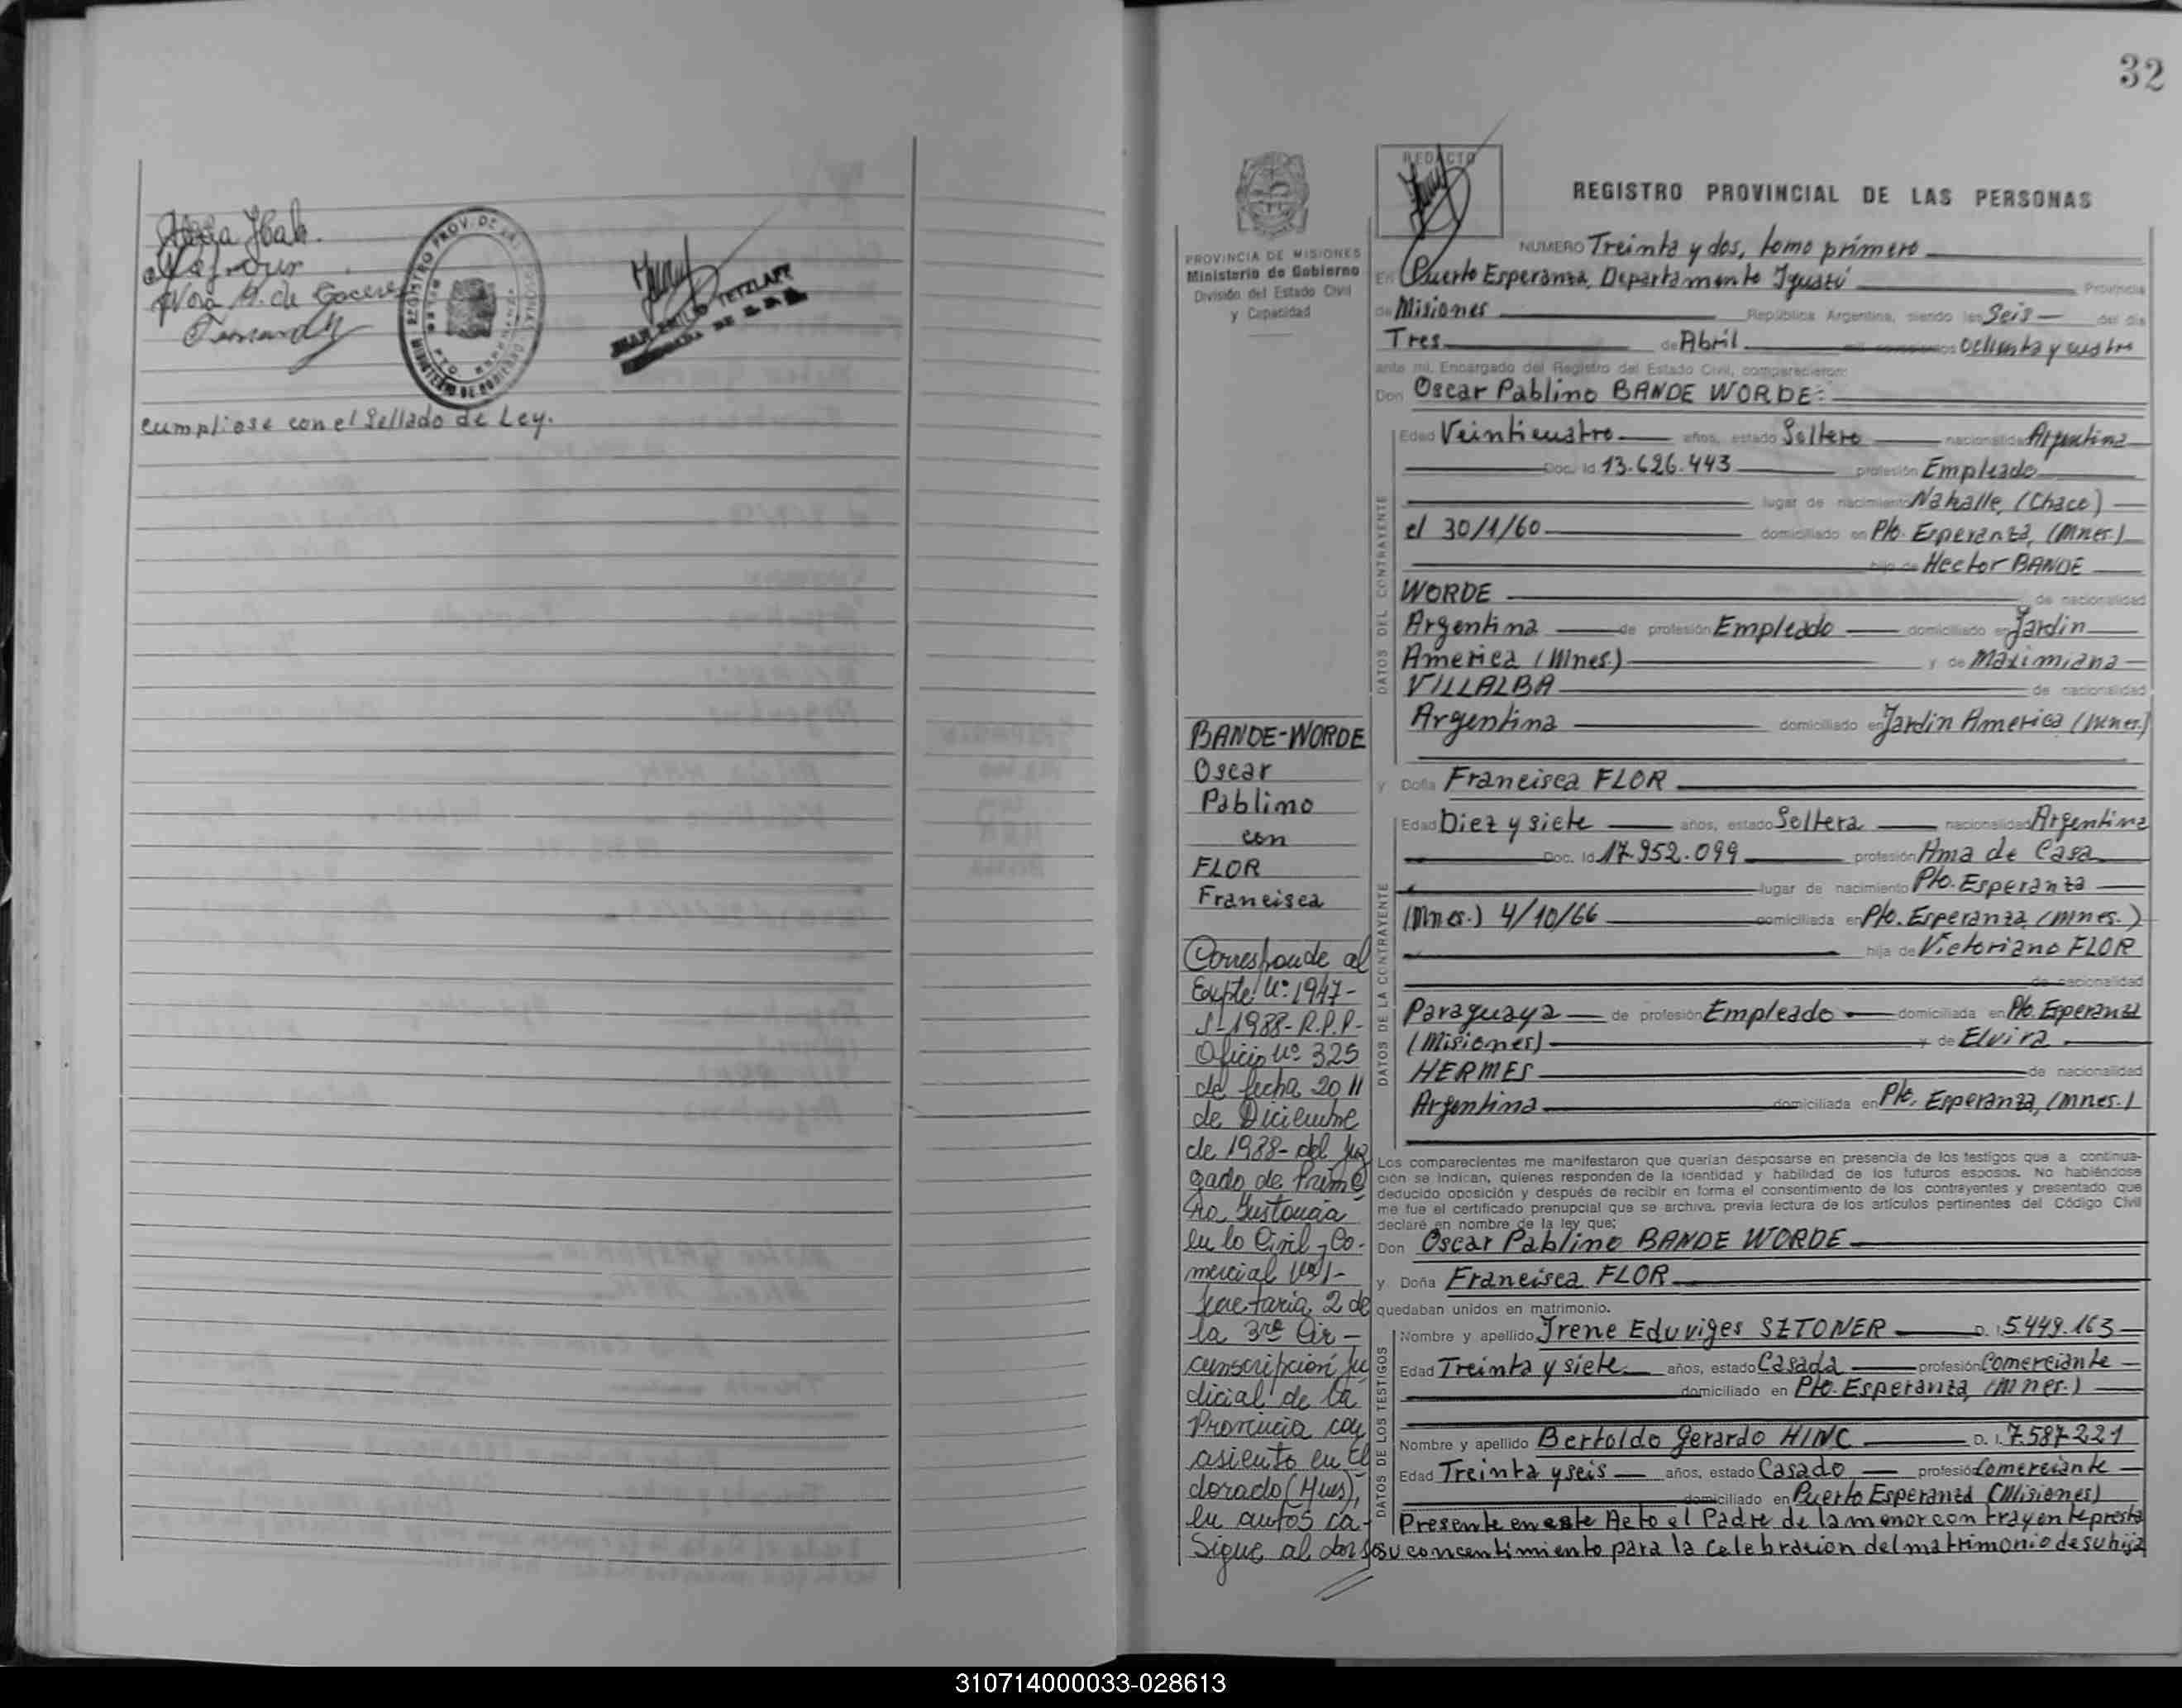 Nora A. de Caceres
REGISTRO PROV. DE LAS PERSONAS
MINISTERIO DE GOBIERNO
PTO. ESPERANZA
JUAN EMILIO TETZLAFF
Cumpliose con el Sellado de Ley.
32
PROVINCIA DE MISIONES
Ministerio de Gobierno
División del Estado Civil
y Capacidad
REDACTO
REGISTRO PROVINCIAL DE LAS PERSONAS
NUMERO Treinta y dos, tomo primero
En Puerto Esperanza, Departamento Iguazú Provincia
de Misiones República Argentina, siendo las Seis del día
Tres de Abril mil novecientos ochenta y cuatro
ante mí, Encargado del Registro del Estado Civil, comparecieron:
Don Oscar Pablino BANDE WORDE
DATOS DEL CONTRAYENTE
Edad Veinticuatro años, estado Soltero nacionalidad Argentina
Doc. Id. 13.626.443 profesión Empleado
lugar de nacimiento Nahalle, (Chaco)
el 30/1/60 domiciliado en Pto. Esperanza, (Mnes.)
hijo de Hector BANDE
WORDE de nacionalidad
Argentina de profesión Empleado domiciliado en Jardin
America (Mnes.) y de Maximiana
VILLALBA de nacionalidad
Argentina domiciliado en Jardin America (Mnes.)
y Doña Francisca FLOR
DATOS DE LA CONTRAYENTE
Edad Diez y siete años, estado Soltera nacionalidad Argentina
Doc. Id. 17.952.099 profesión Ama de Casa
lugar de nacimiento Pto. Esperanza
(Mnes.) 4/10/66 domiciliada en Pto. Esperanza, (Mnes.)
hija de Victoriano FLOR
de nacionalidad
Paraguaya de profesión Empleado domiciliada en Pto. Esperanza
(Misiones) y de Elvira
HERMES de nacionalidad
Argentina domiciliada en Pto. Esperanza, (Mnes.)
Los comparecientes me manifestaron que querían desposarse en presencia de los testigos que a continua-
ción se indican, quienes responden de la identidad y habilidad de los futuros esposos. No habiéndose
deducido oposición y después de recibir en forma el consentimiento de los contrayentes y presentado que
me fue el certificado prenupcial que se archiva, previa lectura de los artículos pertinentes del Código Civil
declaré en nombre de la ley que:
Don Oscar Pablino BANDE WORDE
y Doña Francisca FLOR
quedaban unidos en matrimonio.
DATOS DE LOS TESTIGOS
Nombre y apellido Irene Eduviges SZTONER D. I. 5.449.163
Edad Treinta y siete años, estado Casada profesión Comerciante
domiciliado en Pto. Esperanza, (Mnes.)
Nombre y apellido Bertoldo Gerardo HINC D. I. 7.587.221
Edad Treinta y seis años, estado Casado profesión Comerciante
domiciliado en Puerto Esperanza (Misiones)
Presente en este Acto el Padre de la menor contrayente presta
su concentimiento para la celebracion del matrimonio de su hija
BANDE-WORDE
Oscar
Pablino
con
FLOR
Francisca
Corresponde al
Expte. Nº 1947-
S-1988-R.P.P-
Oficio Nº 325
de fecha 20 //
de Diciembre
de 1988- del Juz
gado de Prime
ra Instancia
en lo Civil y Co-
mercial Nº 1-
Secretaria 2 de
la 3ra Cir-
cunscripción Ju
dicial de la
Provincia con
asiento en El
dorado (Mnes),
en autos ca-
Sigue al dorso
310714000033-028613